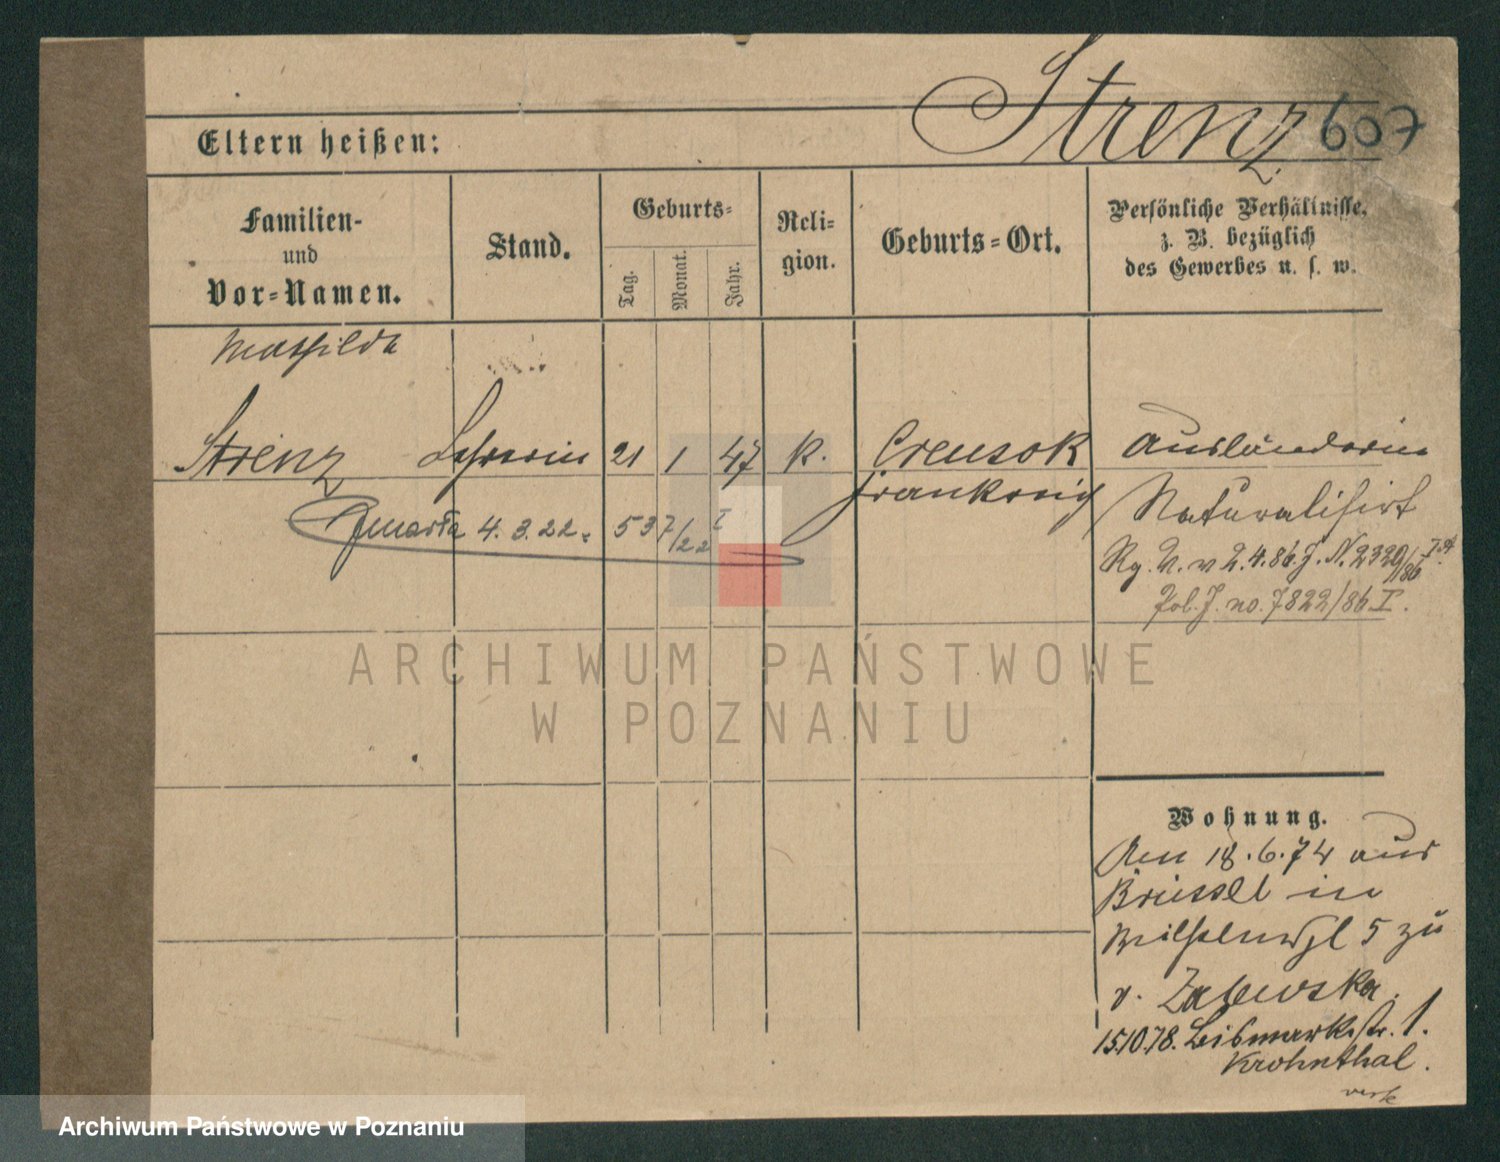 Strenz 607
Eltern heißen:
Familien-
und
Vor-Namen.
Stand.
Geburts-
Tag.
Monat.
Jahr.
Reli-
gion.
Geburts-Ort.
Persönliche Verhältnisse,
z. B. bezüglich
des Gewerbes u. s. w.
Mathilda
Strenz Lehrerin 21 1 47 K. Creusok Ausländerin
Frankreich Naturalisirt
4.3.22. 537/22 I
Rg. V. v 2.4.86. J. N. 2320/86 I A.
Pol. J. no. 7822/86 I.
ARCHIWUM PAŃSTWOWE
W POZNANIU
Wohnung.
Am 18.6.74 aus
Brüssel in
Wilhelmspl 5 zu
v. Zalewska.
15.10.78. Bismarkstr. 1.
Krohnthal.
Archiwum Państwowe w Poznaniu